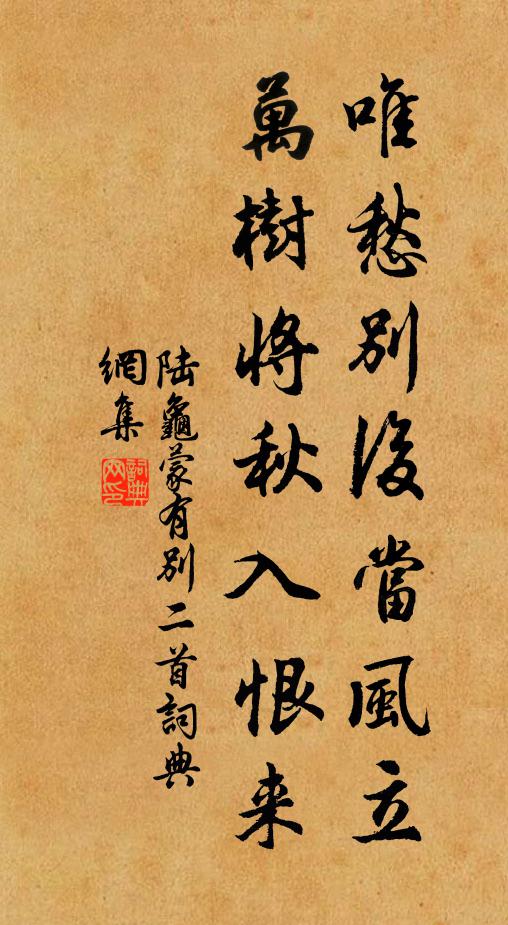 唯愁別後當風立
萬樹將秋入恨来
陆龜蒙有別二首詞典
網集
詞典
网印